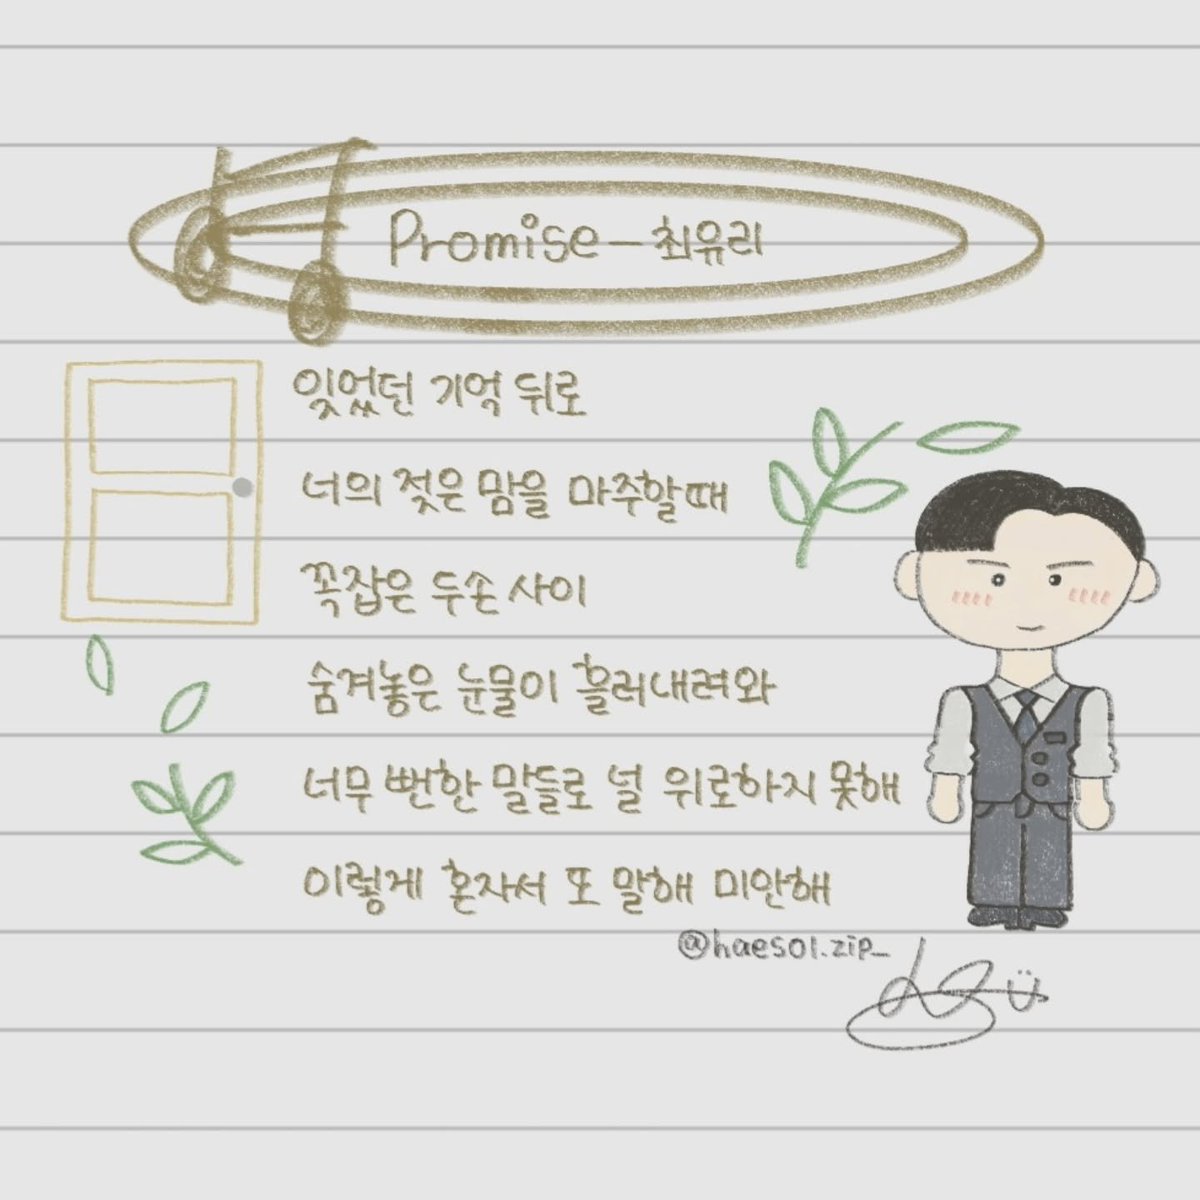 Promise-최유리
잊었던 기억 뒤로
너의 젖은 맘을 마주할때
꼭잡은 두손 사이
숨겨놓은 눈물이 흘러내려와
너무 뻔한 말들로 널 위로하지 못해
이렇게 혼자서 또 말해 미안해
@haesol.zip_